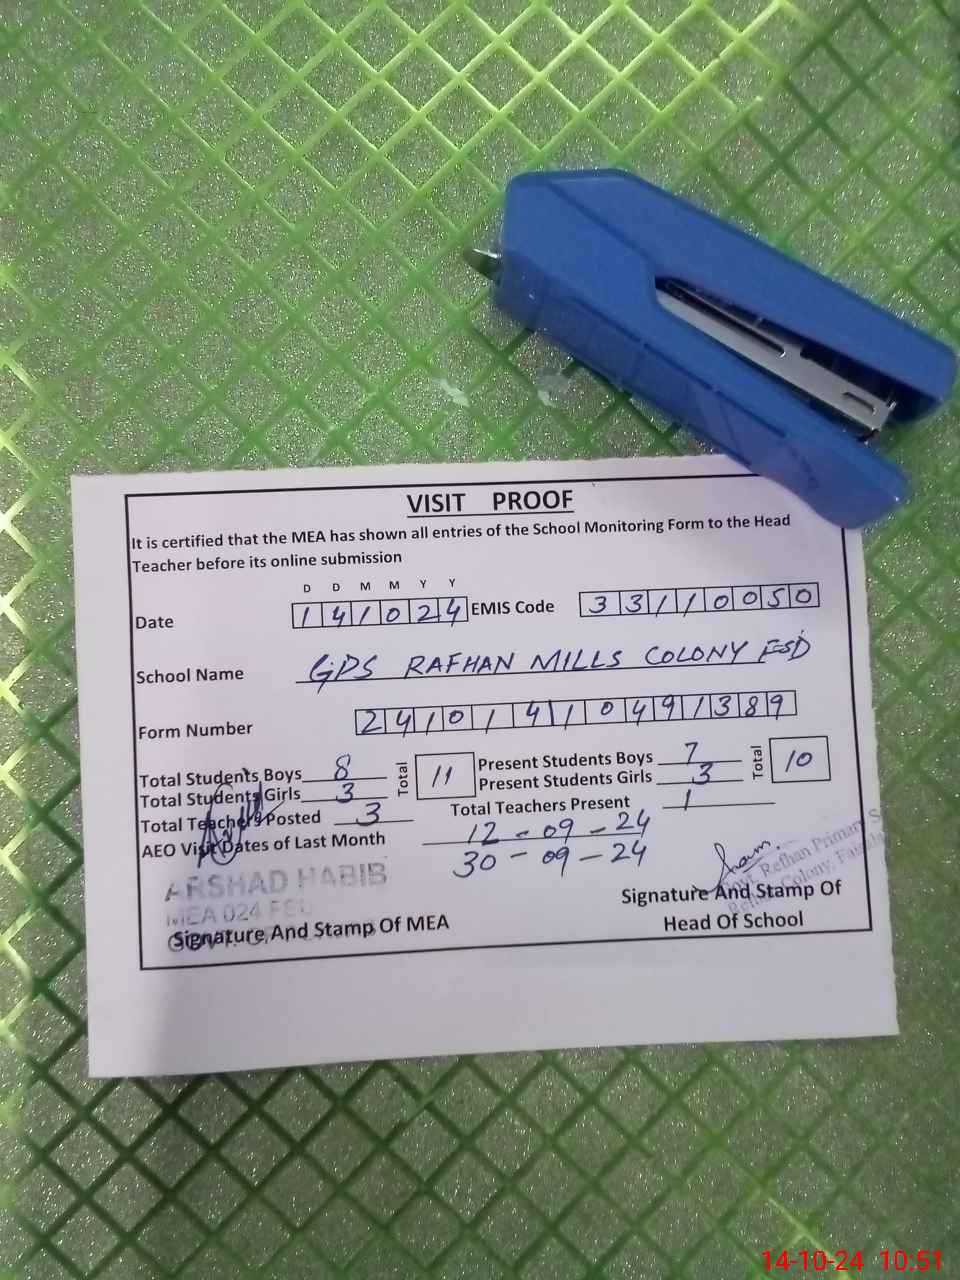 VISIT PROOF
It is certified that the MEA has shown all entries of the School Monitoring Form to the Head
Teacher before its online submission
D D M M Y Y
Date 141024 EMIS Code 33110050
School Name GPS RAFHAN MILLS COLONY FSD
Form Number 24101410491389
Total Students Boys 8 Total 11 Present Students Boys 7 Total 10
Total Students Girls 3 Present Students Girls 3
Total Teachers Posted 3 Total Teachers Present 1
AEO Visit Dates of Last Month 12-09-24
30-09-24
ARSHAD HABIB
MEA 024 FSD
Govt. Refhan Primary S
Colony,
Signature And Stamp Of MEA
Signature And Stamp Of
Head Of School
14-10-24 10:51